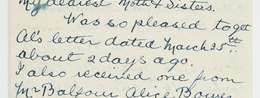 My dearest Mother & Sisters.
Was so pleased to get
Al's letter dated March 25th
about 2 days ago.
I also received one from
Mr Balfour Alice Bower